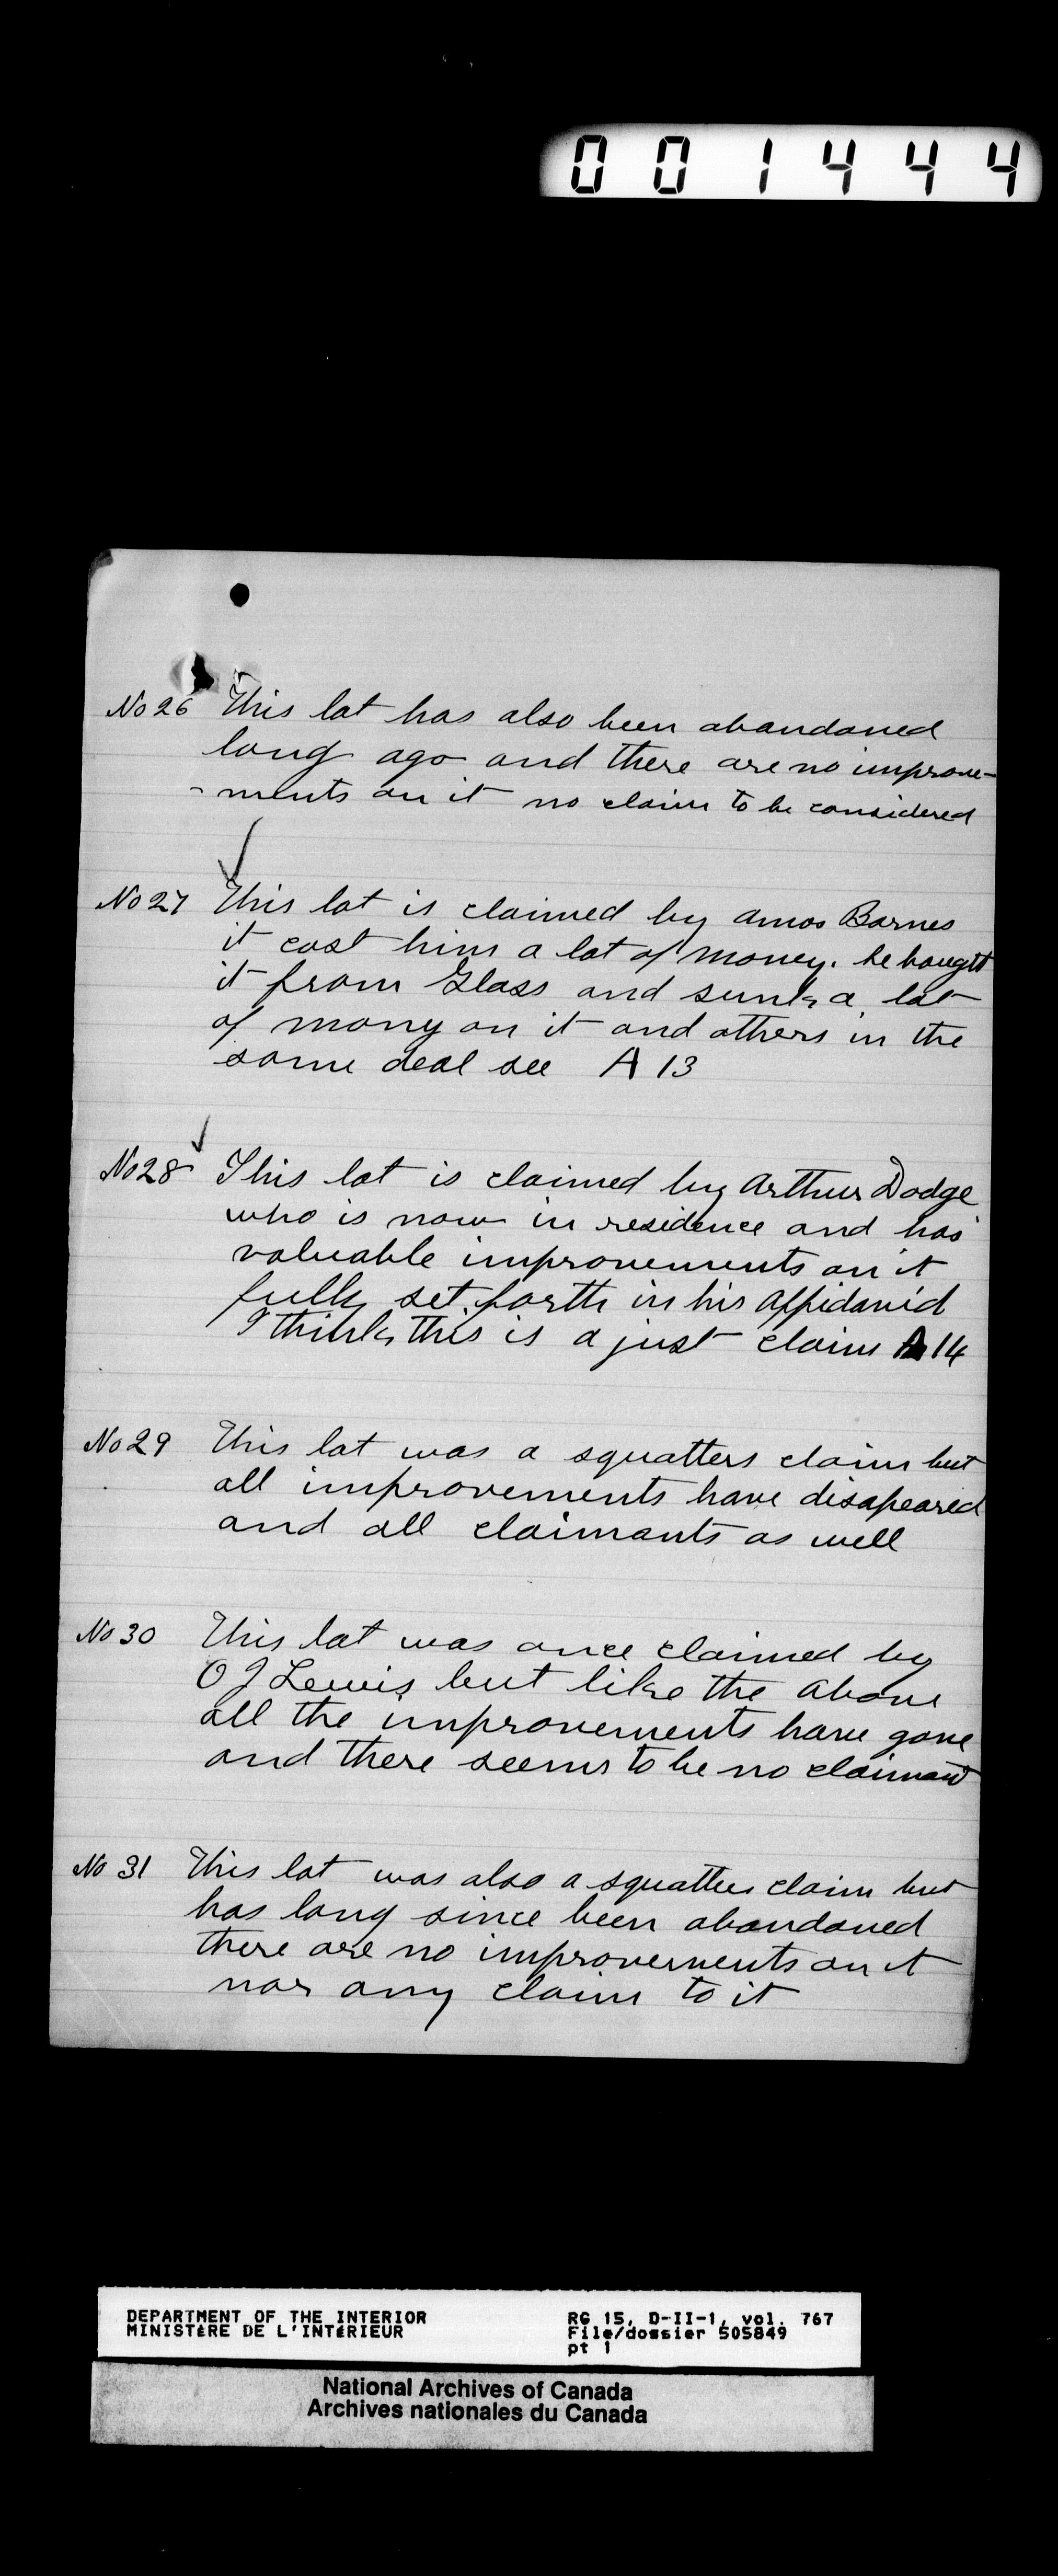 001444
No 26 This lot has also been abandoned
long ago and there are no improve-
-ments on it no claim to be considered
No 27 This lot is claimed by Amos Barnes
it cost him a lot of money. he bought
it from Glass and sunk a lot
of mony on it and others in the
same deal see A 13
No 28 This lot is claimed by Arthur Dodge
who is now in residence and has
valuable improvements on it
fully set forth in his Affidavid
I think this is a just claim A 14
No 29 This lot was a squatters claim but
all improvements have disapeared
and all claimants as well
No 30 This lot was once claimed by
O J Lewis but like the above
all the improvements have gone
and there seems to be no claimant
No 31 This lot was also a squatters claim but
has long since been abandoned
there are no improvements on it
nor any claim to it
DEPARTMENT OF THE INTERIOR RG 15, D-II-1, vol. 767
MINISTÈRE DE L'INTÉRIEUR File/dossier 505849
pt 1
National Archives of Canada
Archives nationales du Canada